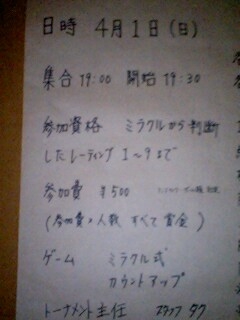 日時 4月1日(日)
集合 19:00 開始 19:30
参加資格 ミラクルから判断
したレーティング 1〜9まで
参加費 ¥500
(参加費×人数 すべて賞金)
ゲーム ミラクル式
カウントアップ
トーナメント主任 スタッフ